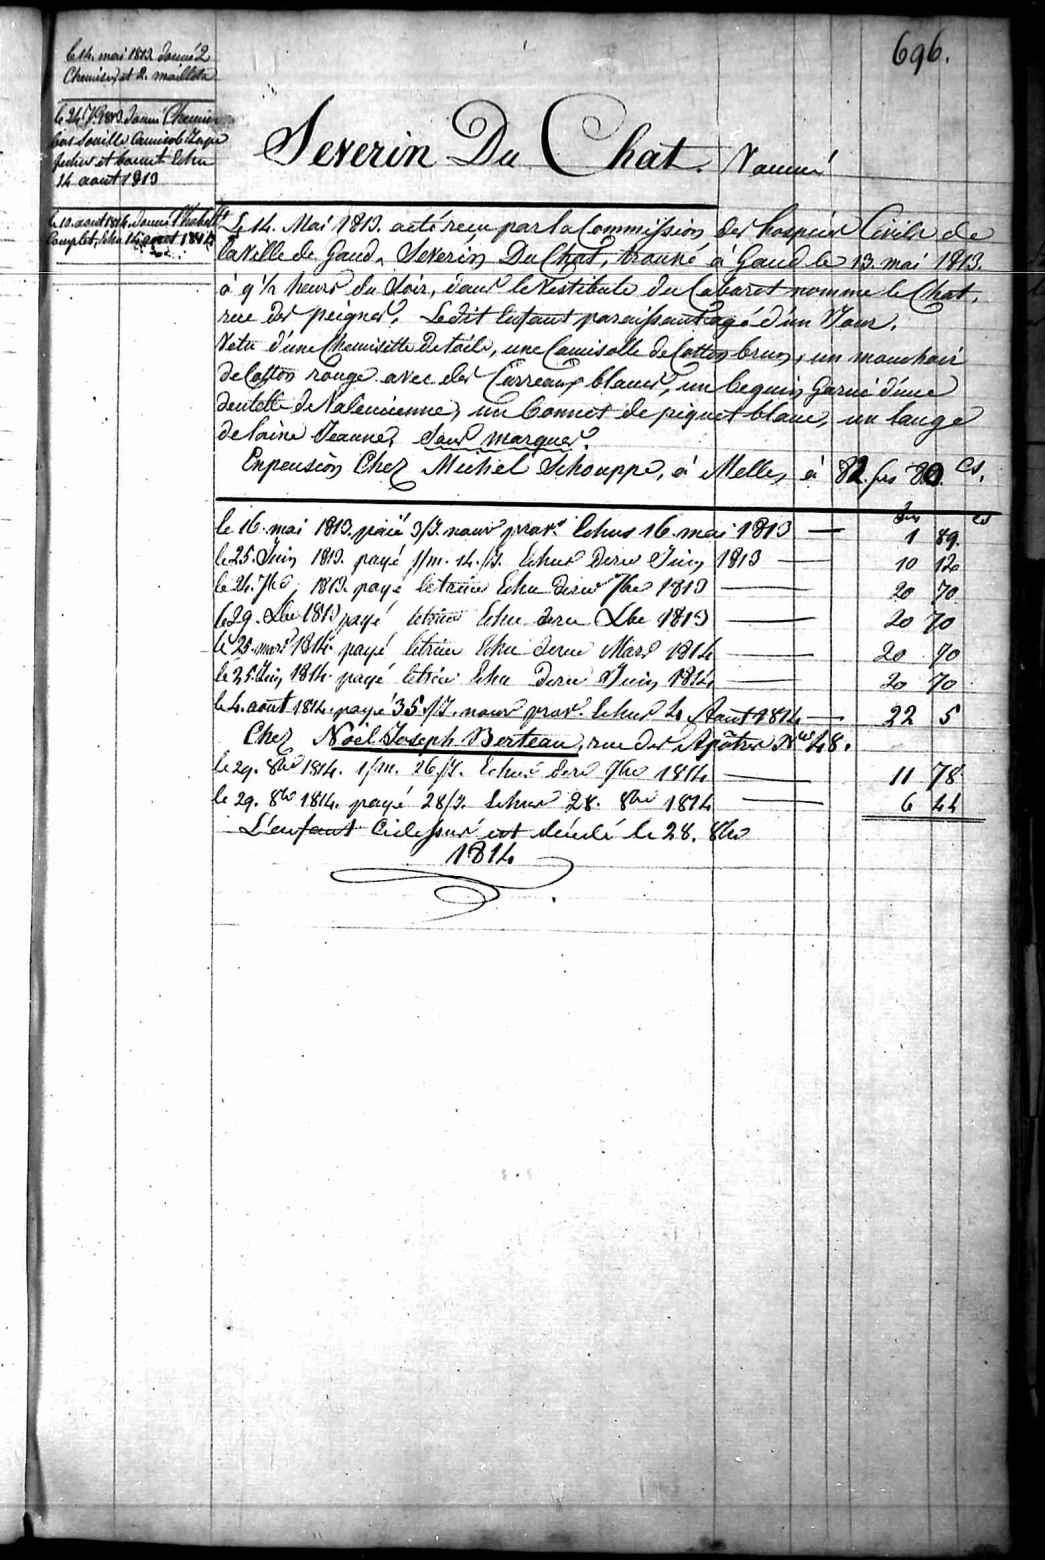 696.
le 14. mai 1813 donné 2
Chemises et 2. maillots
le 24. 7bre 1813 donné Chemise
bas Souille Camisole Jaque
et bonnet Echu
14 aout 1813
le 10. aout 1814. donné
Complet, Echu 14 aout 1814
Severin Du Chat. Vacciné
Le 14. Mai 1813. a été reçu par la Commission des hospices Civils de
la Ville de Gand, Severin Du Chat, trouvé à Gand le 13. mai 1813.
à 9 1/2 heures du Soir, dans le Vestibule du Cabaret nommé le Chat,
rue des peignes. Ledit Enfant paraissant agé d'un Jour.
Vetu d'une Chemisette de toile, une Camisolle de Cotton brun, un mouchoir
de Cotton rouge avec des Carreaux blancs, un beguin Garni d'une
dentelle de Valencienne, un bonnet de piquet blanc, un lange
de laine Jeaune, Sans marques.
En pension Chez Michel Schouppe, à Melle, à 82. frs 80 Cs.
frs cs
le 16. mai 1813. paié 3/J. nour prov. Echus 16. mai 1813 — 1 89.
le 25. Juin 1813. payé 1/m. 14./J. Echus dere Juin 1813 — 10 120
le 24. 7bre 1813. payé le trim Echu dere 7bre 1813 — 20 70
le 29. Xbre 1813 payé le trim Echu dere Xbre 1813 — 20 70
le 25. mars 1814. payé le trim Echu dere Mars 1814 — 20 70
le 25. Juin 1814. payé le trim Echu dere Juin 1814 — 20 70
le 4. aout 1814. payé 35/J. nour prov. Echus 4 Aout 1814 — 22 5
Chez Noël Joseph Berteau, rue des Apôtres No 48.
le 29. 8bre 1814. 1/m. 26/J. Echus dere 7bre 1814 — 11 78
le 29. 8bre 1814. payé 28/J. Echus 28. 8bre 1814 — 6 44
L'enfant Ci dessus est décédé le 28. 8bre
1814